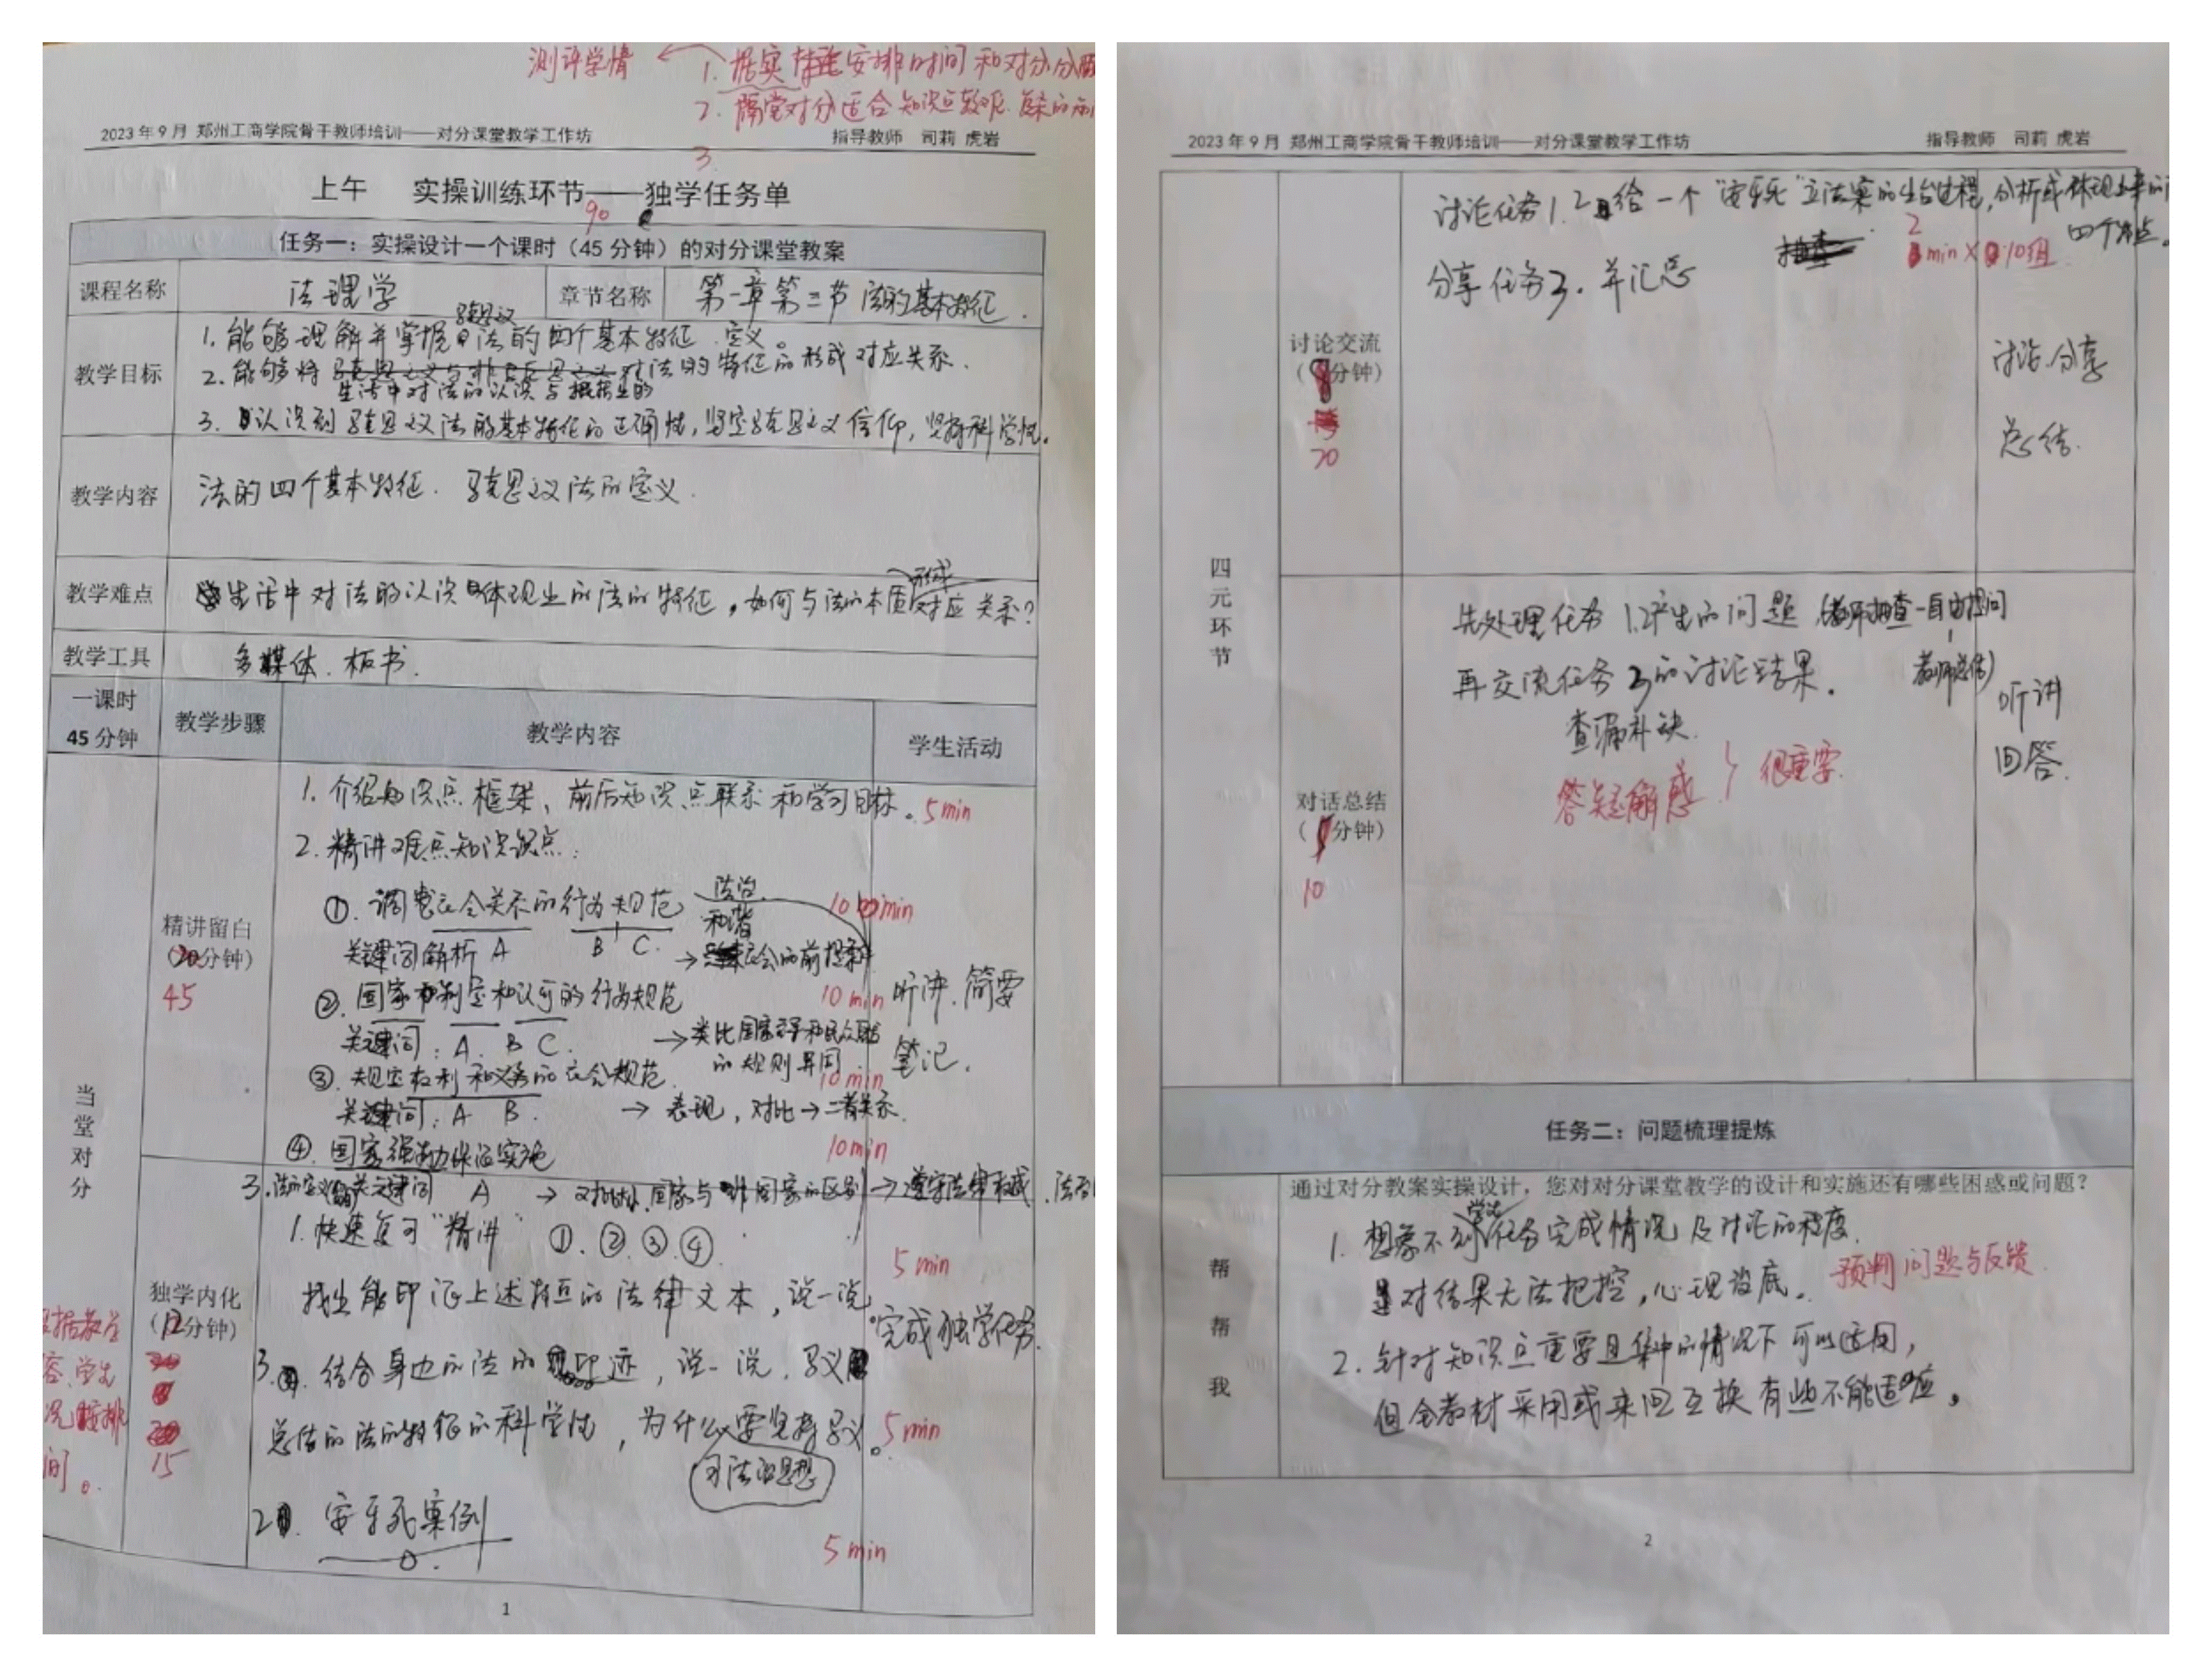 测评学情
1. 据实 安排时间和对分分
2. 隔堂对分适合知识点较难
3.
2023 年 9 月 郑州工商学院骨干教师培训——对分课堂教学工作坊 指导教师 司莉 虎岩
上午 实操训练环节——独学任务单
90
任务一：实操设计一个课时（45 分钟）的对分课堂教案
课程名称 法理学 章节名称 第一章第三节 法的基本特征.
教学目标
1. 能够理解并掌握马克思主义法的四个基本特征、定义。
2. 能够将生活中对法的认识与 法的特征的形成对应关系.
3. 认识到马克思主义法的基本特征的正确性, 坚定马克思主义信仰, 坚持科学性.
教学内容 法的四个基本特征. 马克思主义法的定义.
教学难点 生活中对法的认识体现出的法的特征, 如何与法的本质形成对应关系?
教学工具 多媒体. 板书.
一课时
45 分钟 教学步骤 教学内容 学生活动
当堂对分
精讲留白
（20分钟）
45
1. 介绍知识点框架、前后知识点联系和学习目标。 5min
2. 精讲难点知识点:
①. 调整社会关系的行为规范 法治 和谐 10 min
关键词解析 A B C. → 社会的前提条件
②. 国家制定和认可的行为规范 10 min
关键词: A. B C. → 类比国家 和民众
的规则异同.
听讲. 简要
笔记.
③. 规定权利和义务的社会规范. 10 min
关键词: A B. → 表现, 对比→二者关系.
④. 国家强制力保证实施 10min
3. 法的定义 关键词 A → 对比 国家与非国家的区别 → 遵守法律权威.
独学内化
（12分钟）
15
1. 快速复习“精讲” ①. ②. ③. ④.
5 min
找出能印证上述特点的法律文本, 说一说
完成独学任务.
3. 结合身边的法的印迹, 说一说. 马义
总结的法的特征的科学性, 为什么要坚持马义。 5 min
习法治思想
2. 安乐死案例
5 min
1
2023 年 9 月 郑州工商学院骨干教师培训——对分课堂教学工作坊 指导教师 司莉 虎岩
四元环节
讨论交流
（分钟）
20
讨论任务1. 2 给一个“安乐死”立法案的出台过程, 分析或体现上课的
四个特点。
2min × 10组
分享任务3. 并汇总
讨论. 分享
总结.
对话总结
（分钟）
10
先处理任务1.2产生的问题 (教师抽查-自由提问
教师总结)
再交流任务3的讨论结果.
查漏补缺.
答疑解惑 } 很重要.
听讲
回答.
任务二：问题梳理提炼
帮帮我
通过对分教案实操设计，您对对分课堂教学的设计和实施还有哪些困惑或问题？
1. 想象不到学生任务完成情况及讨论的程度.
对结果无法把控, 心理没底. 预判问题与反馈.
2. 针对知识点重要且集中的情况下可以适用,
但全教材采用或来回互换有些不能适应。
2